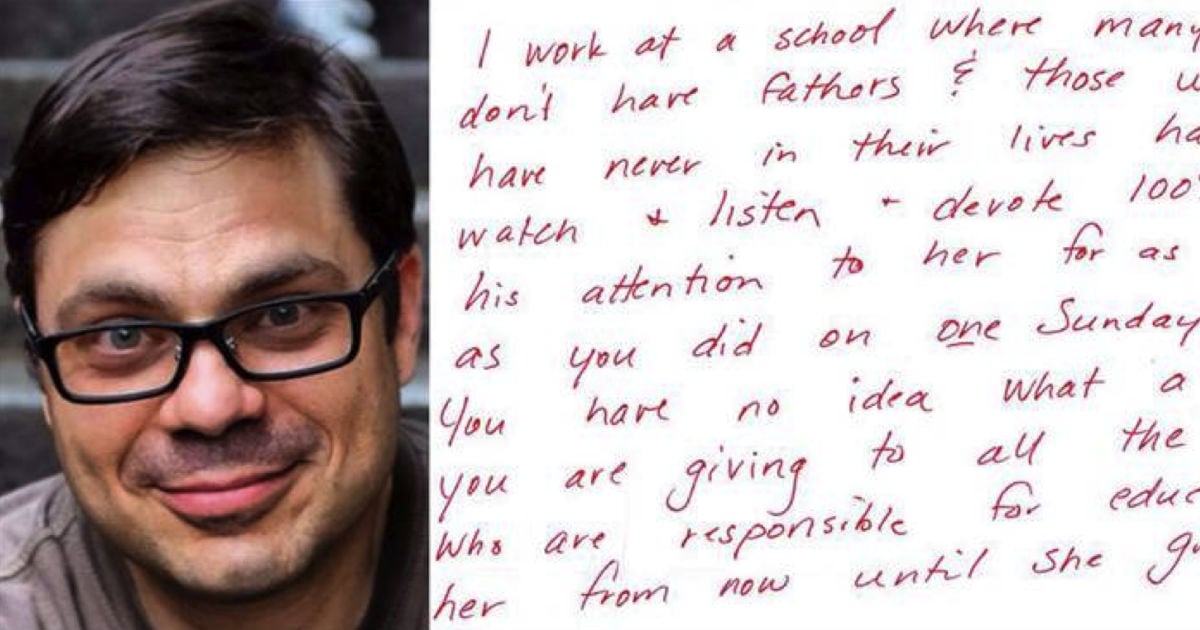 I work at a school where many
don't have fathers & those
have never in their lives
watch & listen + devote 100
his attention to her for as
as you did on one Sunday
You have no idea what a
you are giving to all the
who are responsible for
her from now until she